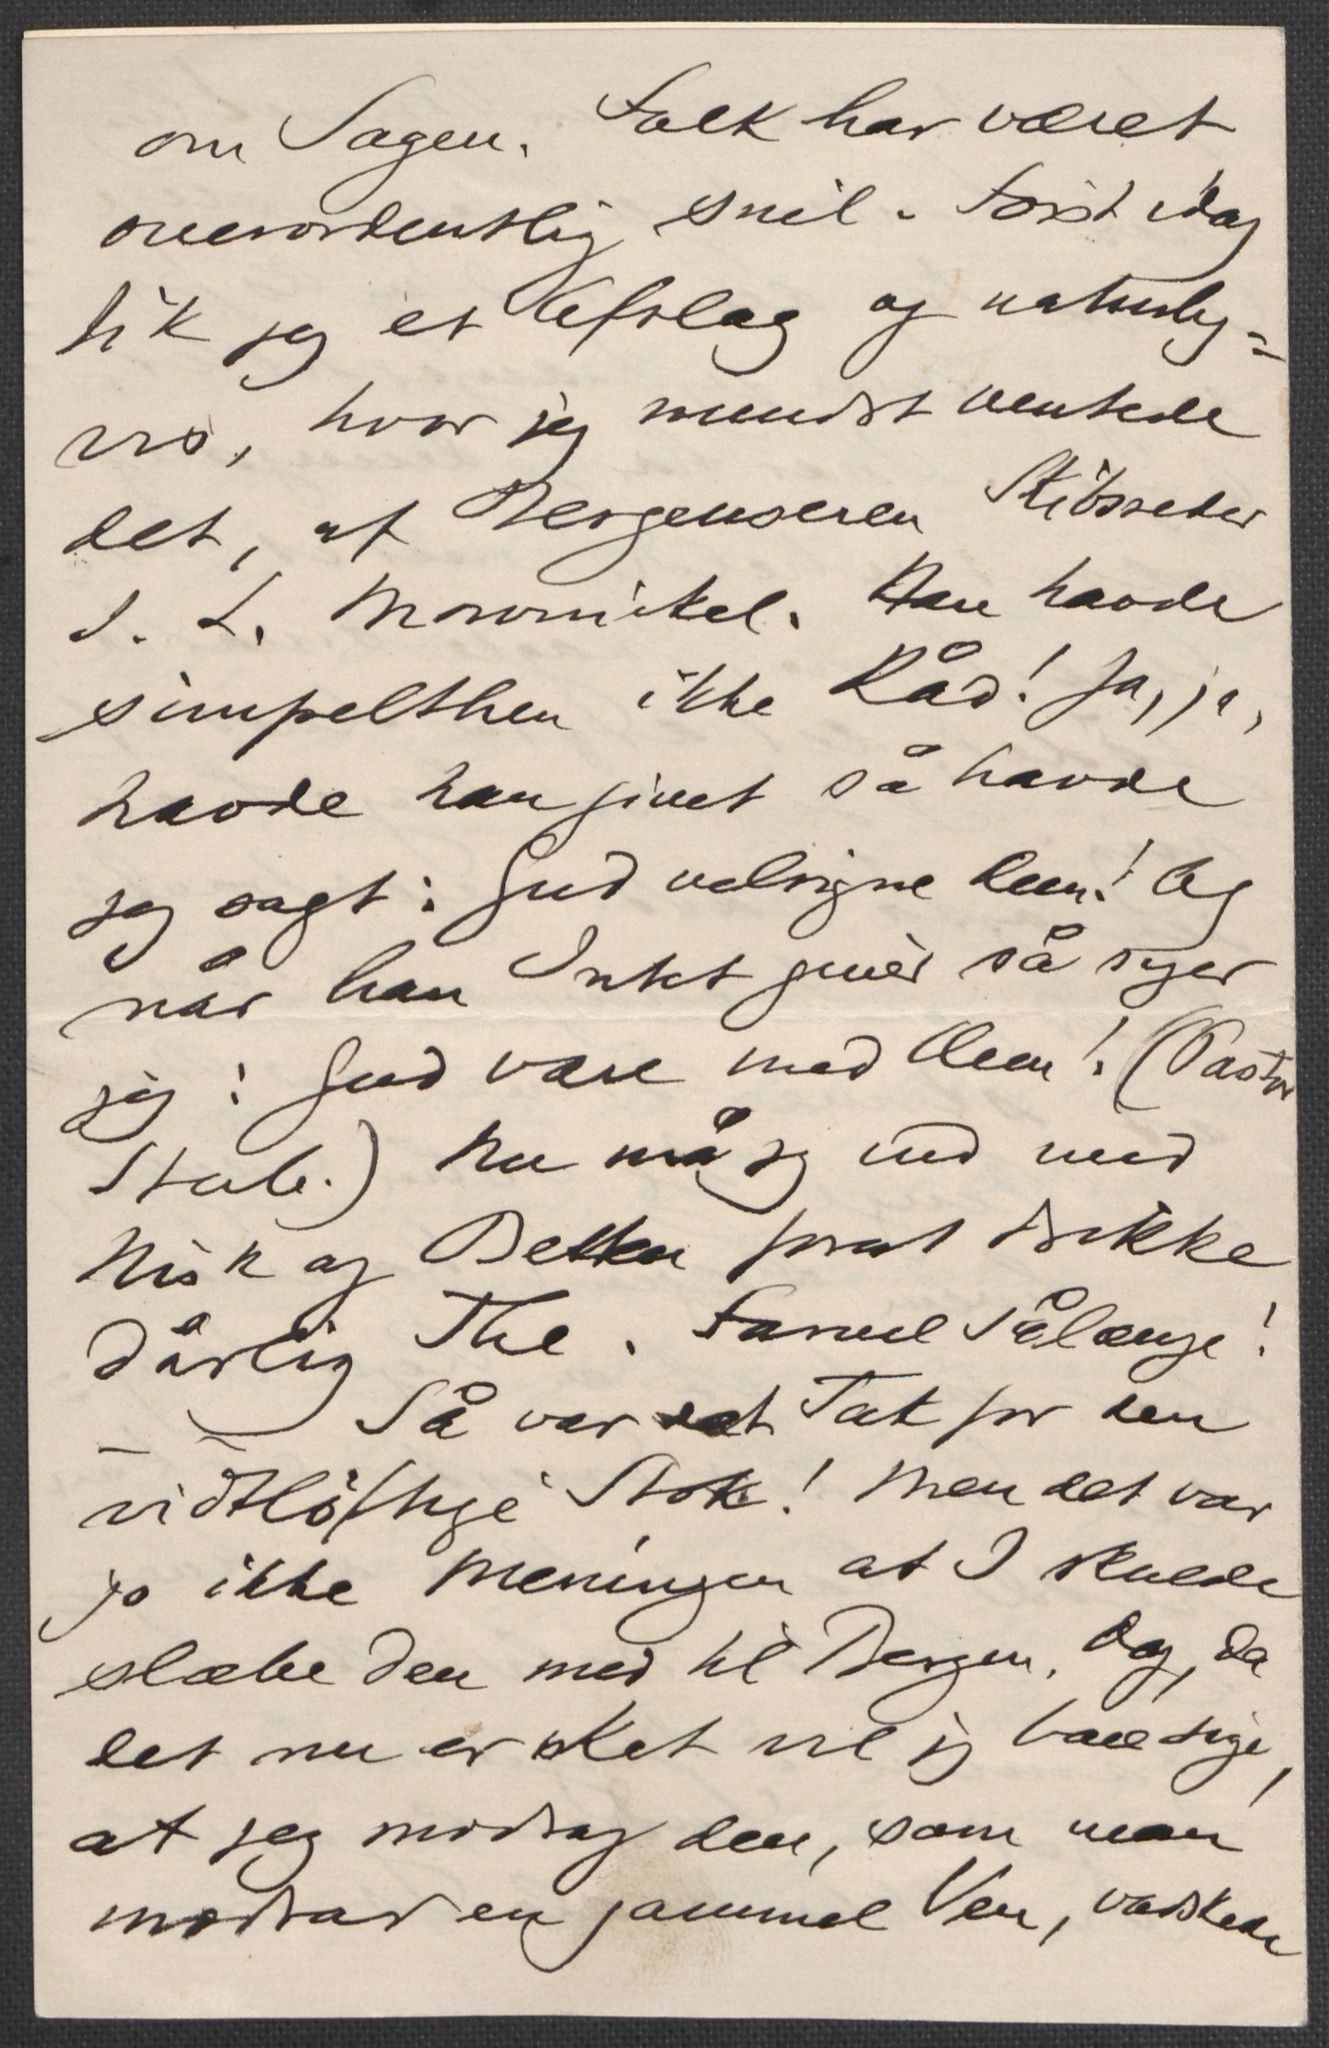 om Sagen. Folk har været
overordentlig snil. Först idag
fik jeg et Afslag og naturlig=
vis, hvor jeg mindst ventede
det, af Bergenseren Skibsreder
J. L. Mowinckel. Han havde
simpelthen ikke Råd! Ja, ja,
havde han givet så havde
jeg sagt: Gud velsigne Dem! Og
når han Intet giver så siger
jeg: Gud være med Dem! (Pastor
Stub.) Nu må jeg ud med
Nina og forat drikke
dårlig The. Farvel Sålænge!
Så var det Tak for den
vidtlöftige Stok! Men det var
jo ikke Meningen at I skulde
slæbe den med til Bergen. Dog, da
det nu er sket vil jeg bare sige,
at jeg modtog den, som man
modtar en gammel Ven, vaskede